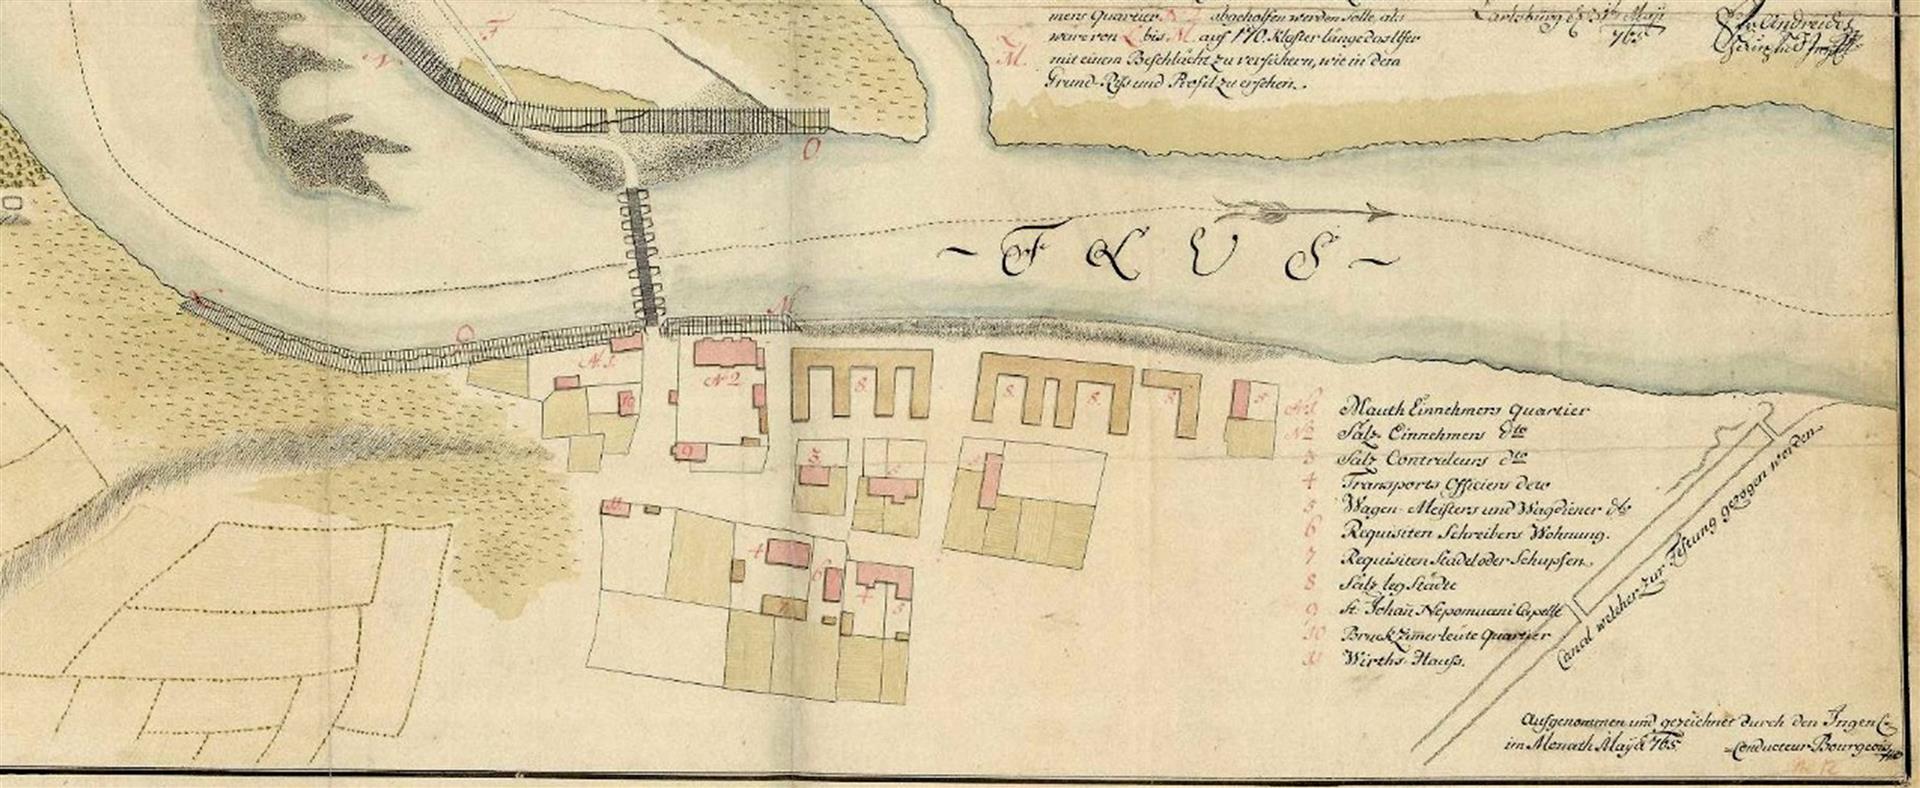 mens Quartier N 2 abgeholfen werden solle, als
L. ware von L bis M. auf 170. Klafter länge dasselbe
M. mit einem Beschlächt zu versichern, wie in dem
Grund-Riss und Profil zu ersehen.
Carlsburg d 31t May
765
F
N
O
~ F L U S ~
N
O
M
N 1
N 2
10
9
8
8
8
8
5
3
5
5
11
4
6
4
5
7
N 1 Mauth Einnehmers Quartier
N 2 Saltz-Einnehmers dto
3 Saltz Controleurs dto
4 Transports Officiers deto
5 Wagen-Meisters und Wagdiener dto
6 Requisiten Schreibers Wohnung.
7 Requisiten Stadel oder Schupfen.
8 Saltz leg Städte
9 St. Johañ Nepomuceni Capelle
10 Bruck Zimerleute Quartier
11 Wirths-Hauss.
Canal welcher Zur Festung gezogen worden
Aufgenommen und gezeichnet durch den Ingen
im Monath May A 765. Conducteur Bourgeois